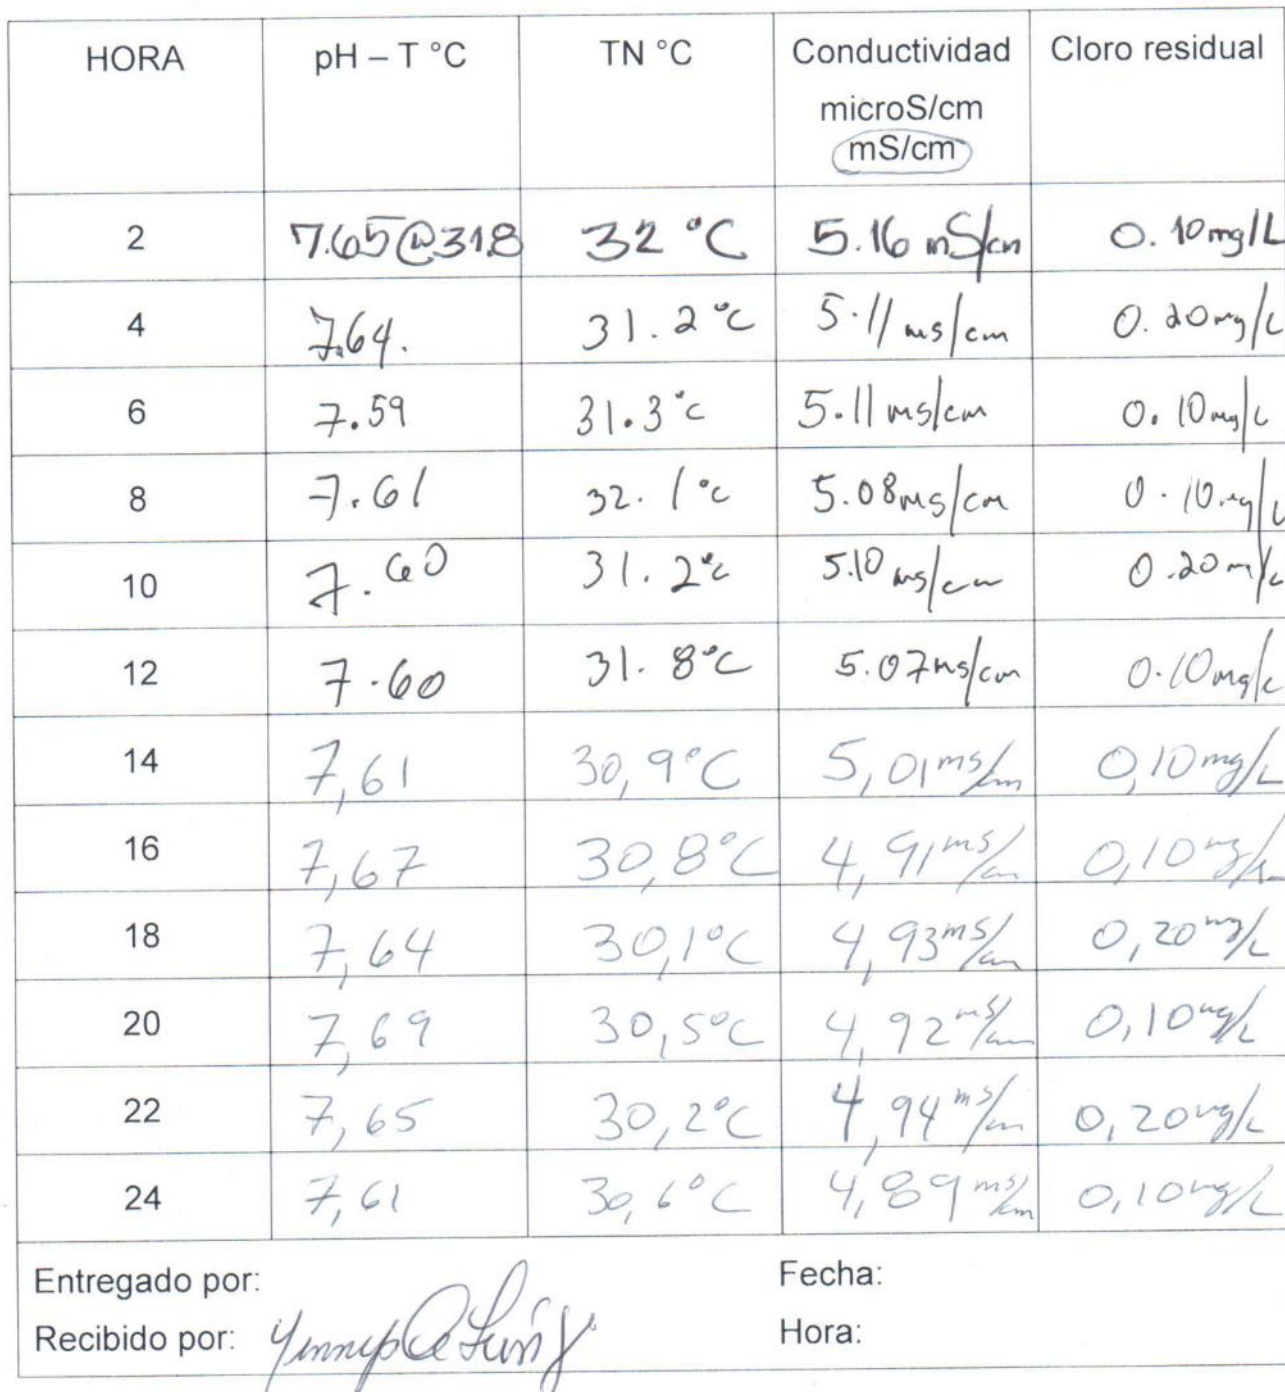 HORA pH – T °C TN °C Conductividad Cloro residual
microS/cm
mS/cm
2 7.65@31.8 32 °C 5.16 mS/cm 0.10mg/L
4 7.64. 31.2°C 5.11 ms/cm 0.20mg/L
6 7.59 31.3°C 5.11 ms/cm 0.10mg/L
8 7.61 32.1°C 5.08ms/cm 0.10mg/L
10 7.60 31.2°C 5.10 ms/cm 0.20m/L
12 7.60 31.8°C 5.07ms/cm 0.10mg/L
14 7,61 30,9°C 5,01ms/cm 0,10mg/L
16 7,67 30,8°C 4,91ms/cm 0,10mg/L
18 7,64 30,1°C 4,93ms/cm 0,20mg/L
20 7,69 30,5°C 4,92ms/cm 0,10mg/L
22 7,65 30,2°C 4,94ms/cm 0,20mg/L
24 7,61 30,6°C 4,89ms/cm 0,10mg/L
Entregado por: Fecha:
Recibido por: Hora: